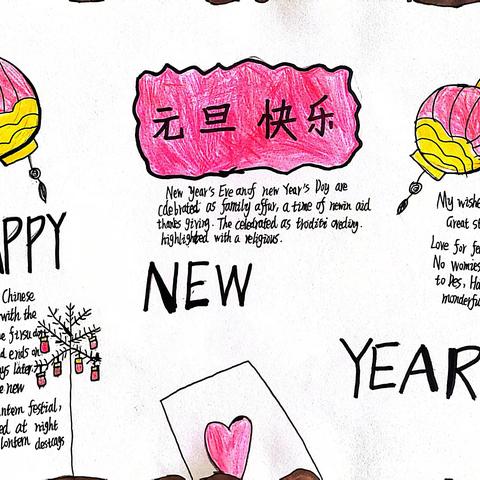 元旦 快乐
New Year's Eve anof new Year's Day are
celebrated as family affur, a time of newin aid
thanks giving. The celebrated as troditi oveding.
highlighted with a religious.
My wishe
Great st
Love for fe
No womies
to Des, Ha
manderfu
APPY
NEW
YEAR
Chinese
with the
e firsu
d ends on
ys later
e new
ntern festial,
ed at night
lontern destags